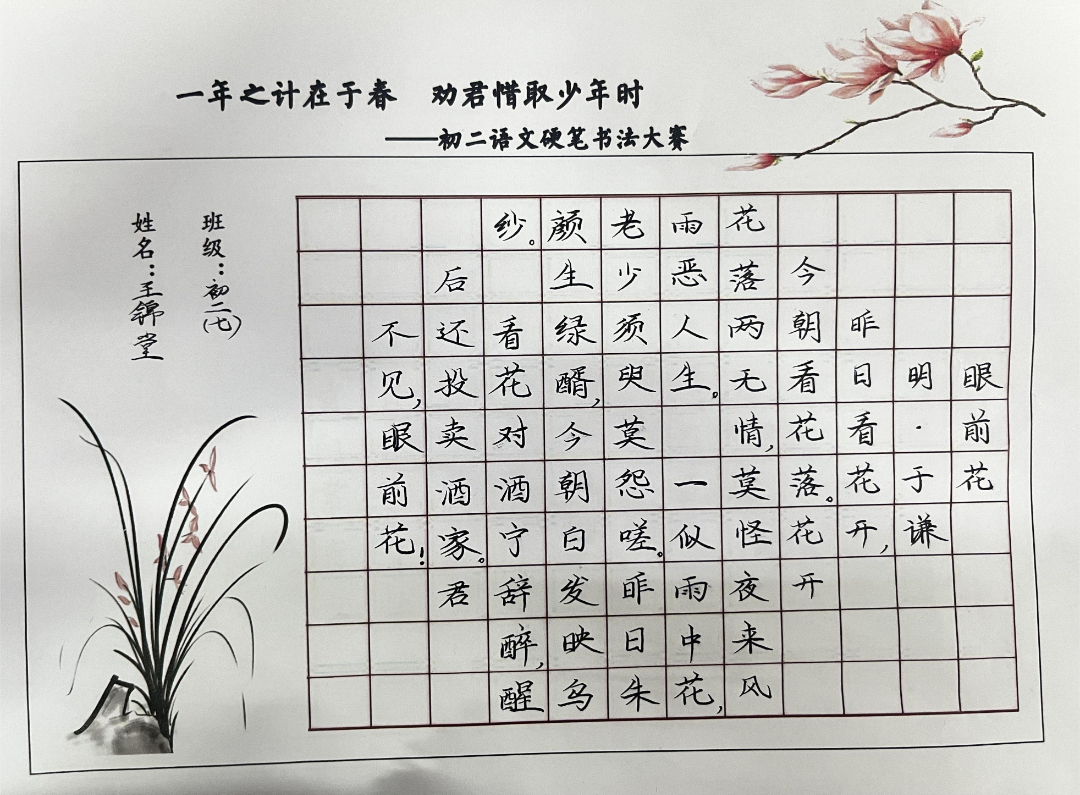 一年之计在于春 劝君惜取少年时
——初二语文硬笔书法大赛
眼前花
明·于谦
昨日看花开,
今朝看花落。花开
花落两无情,莫怪夜来风
雨恶人生。一似雨中花,
老少须臾莫怨嗟。昨日朱
颜生绿醑,今朝白发映乌
纱。看花对酒宁辞醉,醒
后还投卖酒家。君
不见,眼前花!
班级:初二(七)
姓名:王锦堂